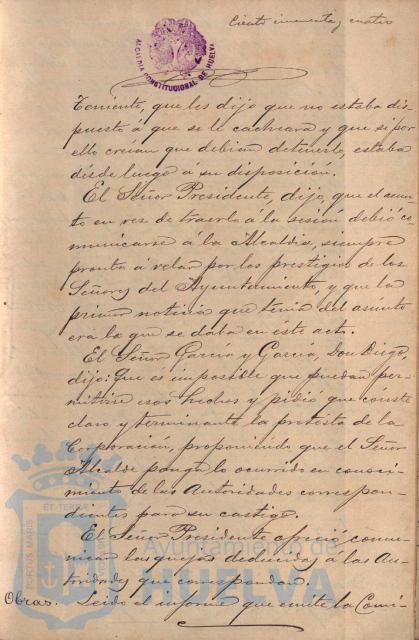 Ciento cincuenta y cuatro
ALCALDIA CONSTITUCIONAL DE HUELVA
Teniente, que les dijo que no estaba dis-
puesto á que se le cacheara y que si por
ello creían que debían detenerlo, estaba
desde luego á su disposición.
El Señor Presidente, dijo, que el asun-
to en vez de traerlo á la sesión debió co-
municarse á la Alcaldia, siempre
pronta á velar por los prestigios de los
Señores del Ayuntamiento, y que la
primera noticia que tenia del asunto
era la que se daba en éste acto.
El Señor García y García, Don Diego,
dijo: Que és imposible que puedan per-
mitirse esos hechos y pidió que conste
claro y terminante la protesta de la
Corporación, proponiendo que el Señor
Alcalde ponga lo ocurrido en conoci-
miento de las Autoridades correspon-
dientes para su castigo.
El Señor Presidente ofreció comu-
nicar las quejas deducidas á las Au-
toridades que correspondan.
Obras. Leido el informe que emite la Comi-
PORTUS MARIS ET TERRÆ
Ayuntamiento de
HUELVA